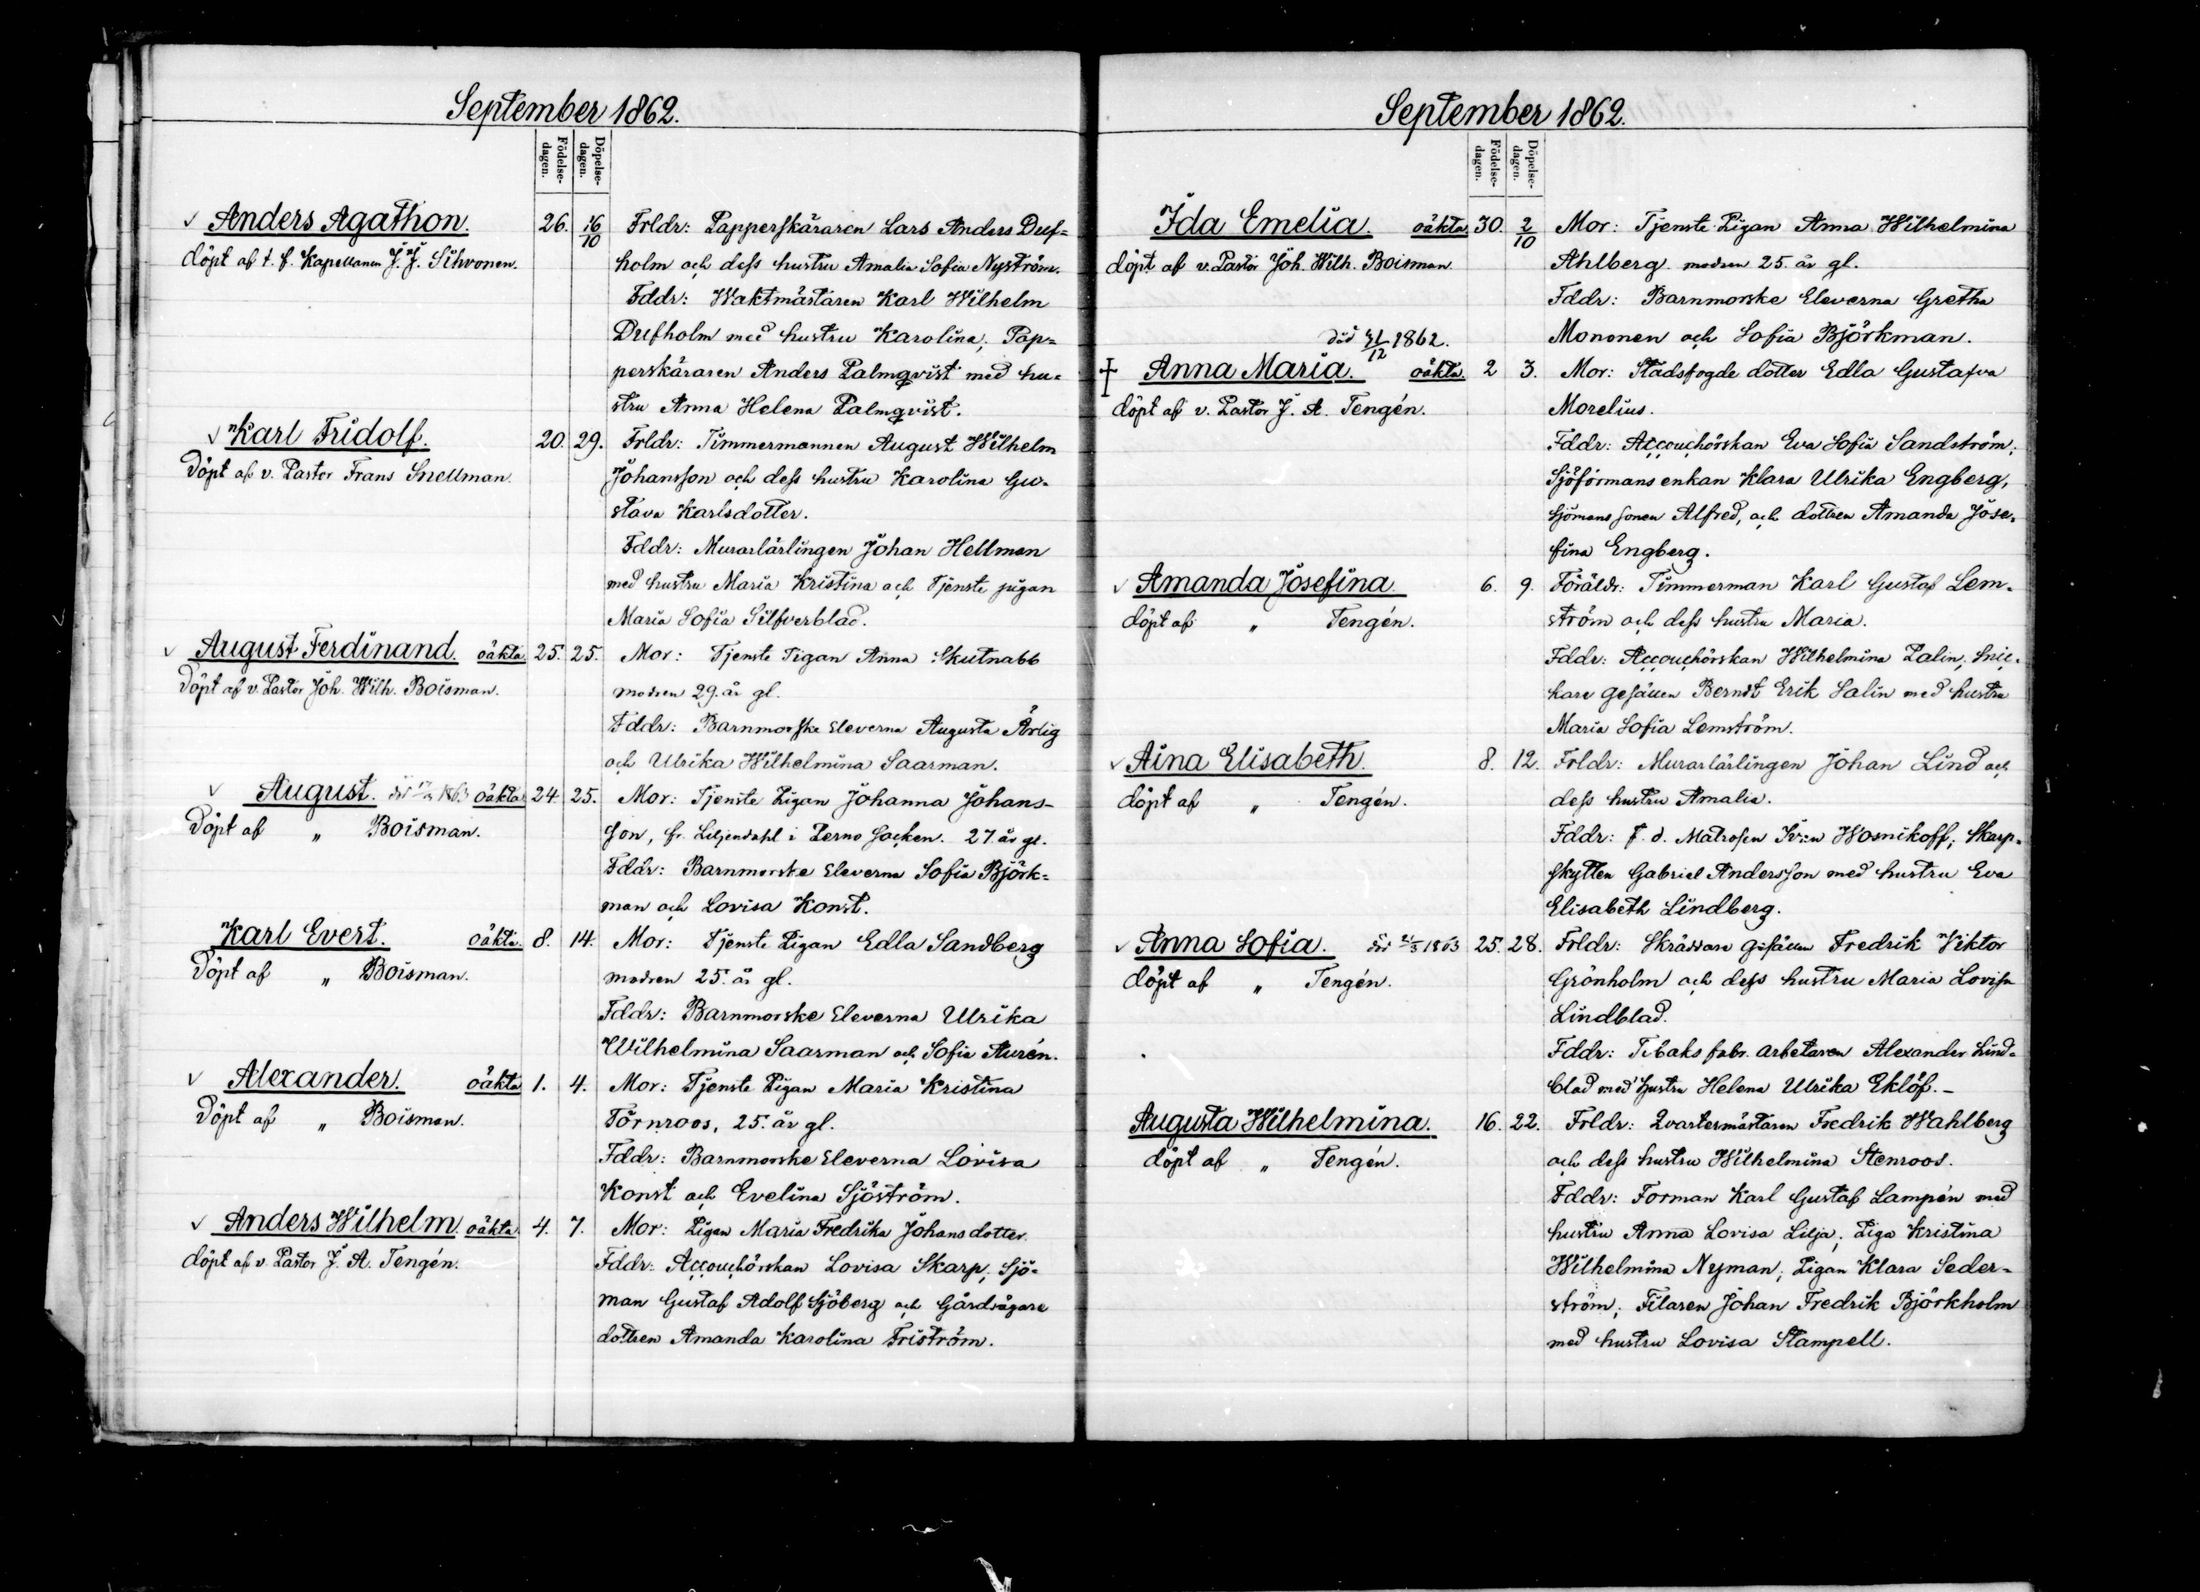 September 1862.
Födelse-dagen.
Döpelse-dagen.
Anders Agathon. 26. 16/10 Frldr: Papperskäraren Lars Anders Duf=
döpt af t. f. Kapellanen J. J. Sihvonen. holm och dess hustru Amalia Sofia Nyström.
Fddr: Waktmästaren Karl Wilhelm
Dufholm med hustru Karolina; Pap=
perskäraren Anders Palmqvist med hu=
stru Anna Helena Palmqvist.
Karl Fridolf. 20. 29. Frldr: Timmermannen August Wilhelm
Döpt af v. Pastor Frans Snellman. Johansson och dess hustru Karolina Gu=
stava Karlsdotter.
Fddr: Murarlärlingen Johan Hellman
med hustru Maria Kristina och Tjenste pigan
Maria Sofia Silfverblad.
August Ferdinand. oäkta 25. 25. Mor: Tjenste Pigan Anna Skutnabb
Döpt af v. Pastor Joh. Wilh. Boisman. modren 29. år gl.
Fddr: Barnmorske Eleverna Augusta Ärlig
och Ulrika Wilhelmina Saarman.
August. död 1863 oäkta 24. 25. Mor: Tjenste Pigan Johanna Johans-
Döpt af „ Boisman. son, fr. Liljendahl i Perno Socken. 27 år gl.
Fddr: Barnmorske Eleverna Sofia Björk=
man och Lovisa Konst.
Karl Evert. oäkta. 8. 14. Mor: Tjenste Pigan Edla Sandberg
Döpt af „ Boisman. modren 25. år gl.
Fddr: Barnmorske Eleverna Ulrika
Wilhelmina Saarman och Sofia Aurén.
Alexander. oäkta 1. 4. Mor: Tjenste Pigan Maria Kristina
Döpt af „ Boisman. Törnroos, 25. år gl.
Fddr: Barnmorske Eleverna Lovisa
Konst och Evelina Sjöström.
Anders Wilhelm. oäkta. 4. 7. Mor: Pigan Maria Fredrika Johansdotter.
döpt af v. Pastor J. A. Tengén. Fddr: Accouchörskan Lovisa Skarp; Sjö=
man Gustaf Adolf Sjöberg och Gårdsägare
dottren Amanda Karolina Friström.
September 1862.
Födelse-dagen.
Döpelse-dagen.
Ida Emelia. oäkta 30. 2/10 Mor: Tjenste Pigan Anna Wilhelmina
döpt af v. Pastor Joh. Wilh. Boisman. Ahlberg. modren 25. år gl.
Fddr: Barnmorske Eleverna Gretha
död 1862. Mononen och Sofia Björkman.
† Anna Maria. oäkta. 2 3. Mor: Stadsfogde dotter Edla Gustafva
döpt af v. Pastor J. A. Tengén. Morelius.
Fddr: Accouchörskan Eva Sofia Sandström;
Sjöförmans enkan Klara Ulrika Engberg,
Sjömans sonen Alfred, och dottren Amanda Jose=
fina Engberg.
Amanda Josefina. 6. 9. Föräldr: Timmerman Karl Gustaf Lem=
döpt af „ Tengén. ström och dess hustru Maria.
Fddr: Accouchörskan Wilhelmina Palin; Snic=
kare gesällen Berndt Erik Salin med hustru
Maria Sofia Lemström.
Aina Elisabeth. 8. 12. Frldr: Murarlärlingen Johan Lind och
döpt af „ Tengén. dess hustru Amalia.
Fddr: f. d. Matrosen Ivan Wosnikoff; Skarp=
skytten Gabriel Andersson med hustru Eva
Elisabeth Lindberg.
Anna Sofia. död 1863 25. 28. Frldr: Skräddare gesällen Fredrik Viktor
döpt af „ Tengén. Grönholm och dess hustru Maria Lovisa
Lindblad.
Fddr: Tobaks fabr. arbetaren Alexander Lind=
blad med hustru Helena Ulrika Eklöf.-
Augusta Wilhelmina. 16. 22. Frldr: Qvartermästaren Fredrik Wahlberg
döpt af „ Tengén. och dess hustru Wilhelmina Stenroos.
Fddr: Forman Karl Gustaf Lampén med
hustru Anna Lovisa Lilja; Piga Kristina
Wilhelmina Nyman; Pigan Klara Seder=
ström; Filaren Johan Fredrik Björkholm
med hustru Lovisa Stampell.